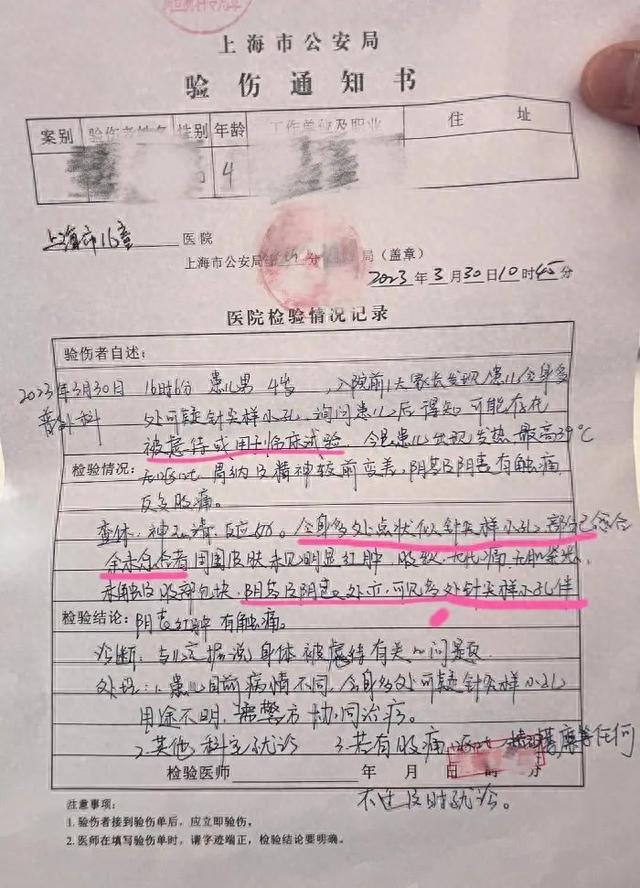 上海市公安局
验伤通知书
案别 验伤者姓名 性别 年龄 工作单位及职业 住址
4
上海市儿童医院
上海市公安局 分 局（盖章）
2023年3月30日10时45分
医院检验情况记录
验伤者自述：
2023年3月30日 16时6分 患儿男 4岁 ，入院前1天家长发现患儿全身多
普外科 处可疑针尖样小孔，询问患儿后得知可能存在
被虐待或用于临床试验。今日患儿出现发热，最高39℃
检验情况： 胃纳及精神较前变差，阴茎及阴囊有触痛，
反复腹痛。
查体：神志清，反应好。全身多处点状似针尖样小孔，部分已愈合
余未愈合者周围皮肤未见明显红肿，腹软，无压痛，无肌紧张，
未触及腹部包块，阴茎及阴囊 处亦可见多处针尖样小孔伴
检验结论： 阴茎红肿有触痛。
诊断： 据说身体被虐待有关问题
处理：1.患儿目前病情不同，全身多处可疑针尖样小孔
用途不明，需警方协同治疗。
2.其他科室就诊 3.若有腹痛 等任何
检验医师 年 月 日 时 分
不适及时就诊。
注意事项：
1.验伤者接到验伤单后，应立即验伤。
2.医师在填写验伤单时，请字迹端正，检验结论要明确。